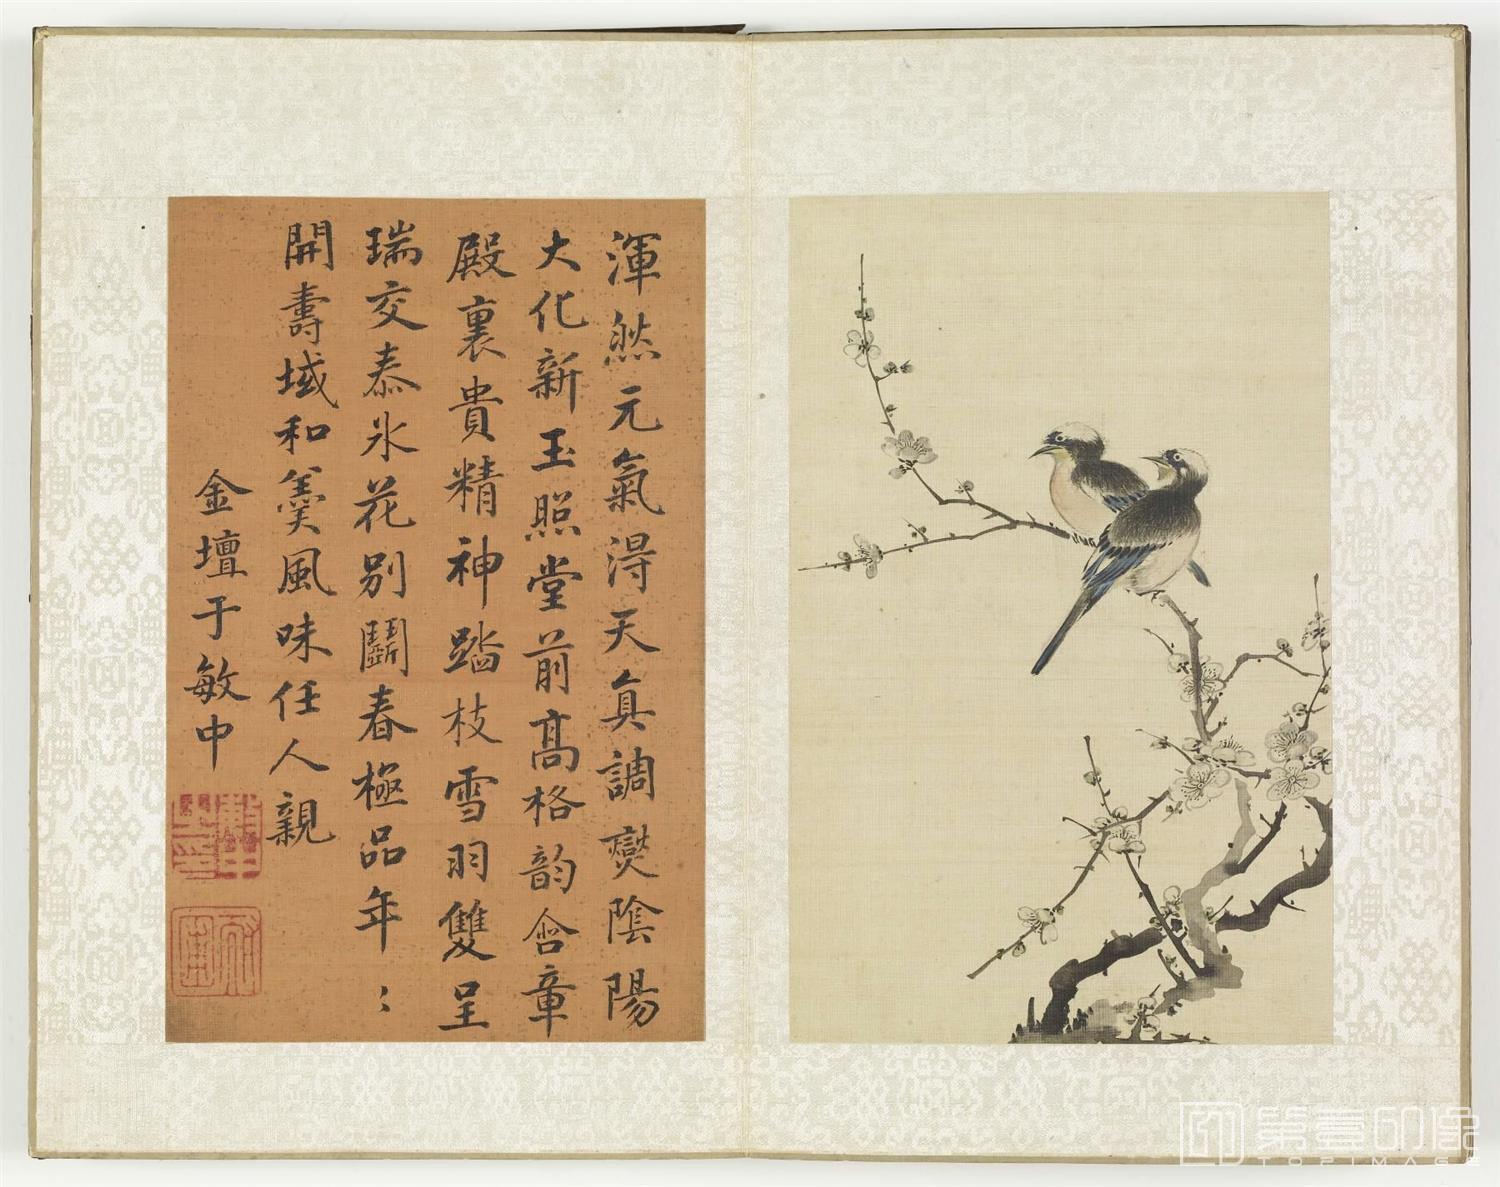 渾然元氣得天真調燮陰陽
大化新玉照堂前高格韵含章
殿裏貴精神踏枝雪羽雙呈
瑞交泰氷花别鬭春極品年〻
開壽域和羹風味任人親
金壇于敏中
第壹印像
TOPIMAGE